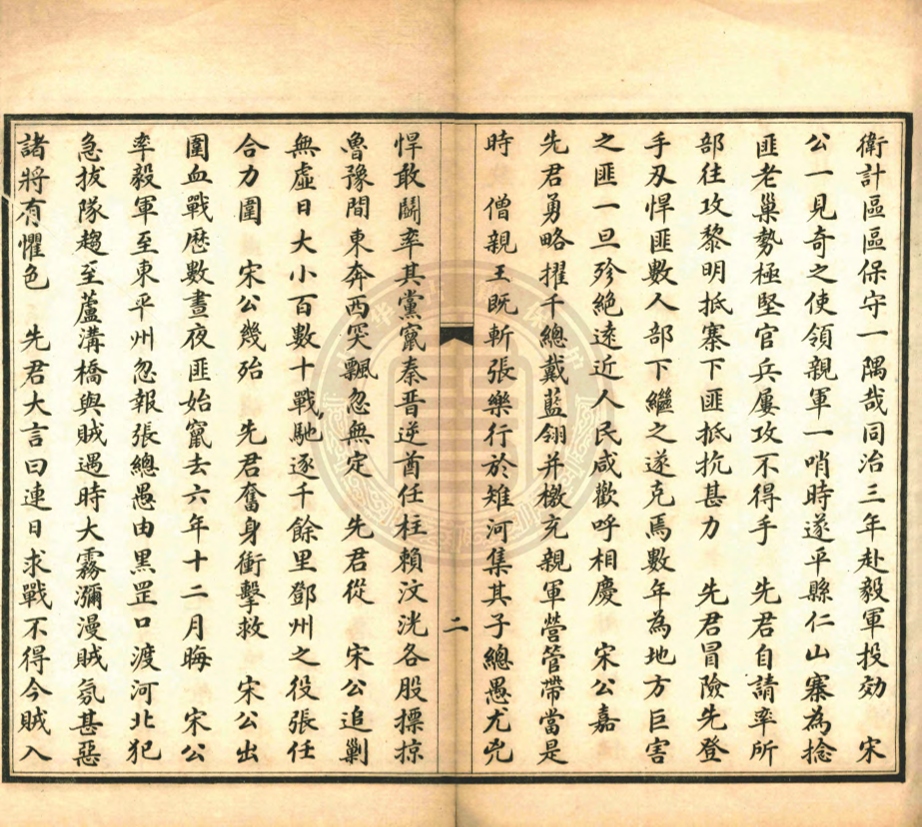 衛計區區保守一隅哉同治三年赴毅軍投効　宋
公一見奇之使領親軍一哨時遂平縣仁山寨為捻
匪老巢勢極堅官兵屢攻不得手　先君自請率所
部往攻黎明抵寨下匪抵抗甚力　先君冒險先登
手刃悍匪數人部下繼之遂克焉數年為地方巨害
之匪一旦殄絕遠近人民咸歡呼相慶　宋公嘉
先君勇略擢千總戴藍翎并檄充親軍營管帶當是
時　僧親王既斬張樂行於雉河集其子總愚尤兇
悍敢鬭率其黨竄秦晉逆酋任柱賴汶洸各股摽掠
魯豫間東奔西突飄忽無定　先君從　宋公追剿
無虛日大小百數十戰馳逐千餘里鄧州之役張任
合力圍　宋公幾殆　先君奮身衝擊救　宋公出
圍血戰歷數晝夜匪始竄去六年十二月晦　宋公
率毅軍至東平州忽報張總愚由黑罡口渡河北犯
急拔隊趨至蘆溝橋與賊遇時大霧瀰漫賊氛甚惡
諸將有懼色　先君大言曰連日求戰不得今賊入
二